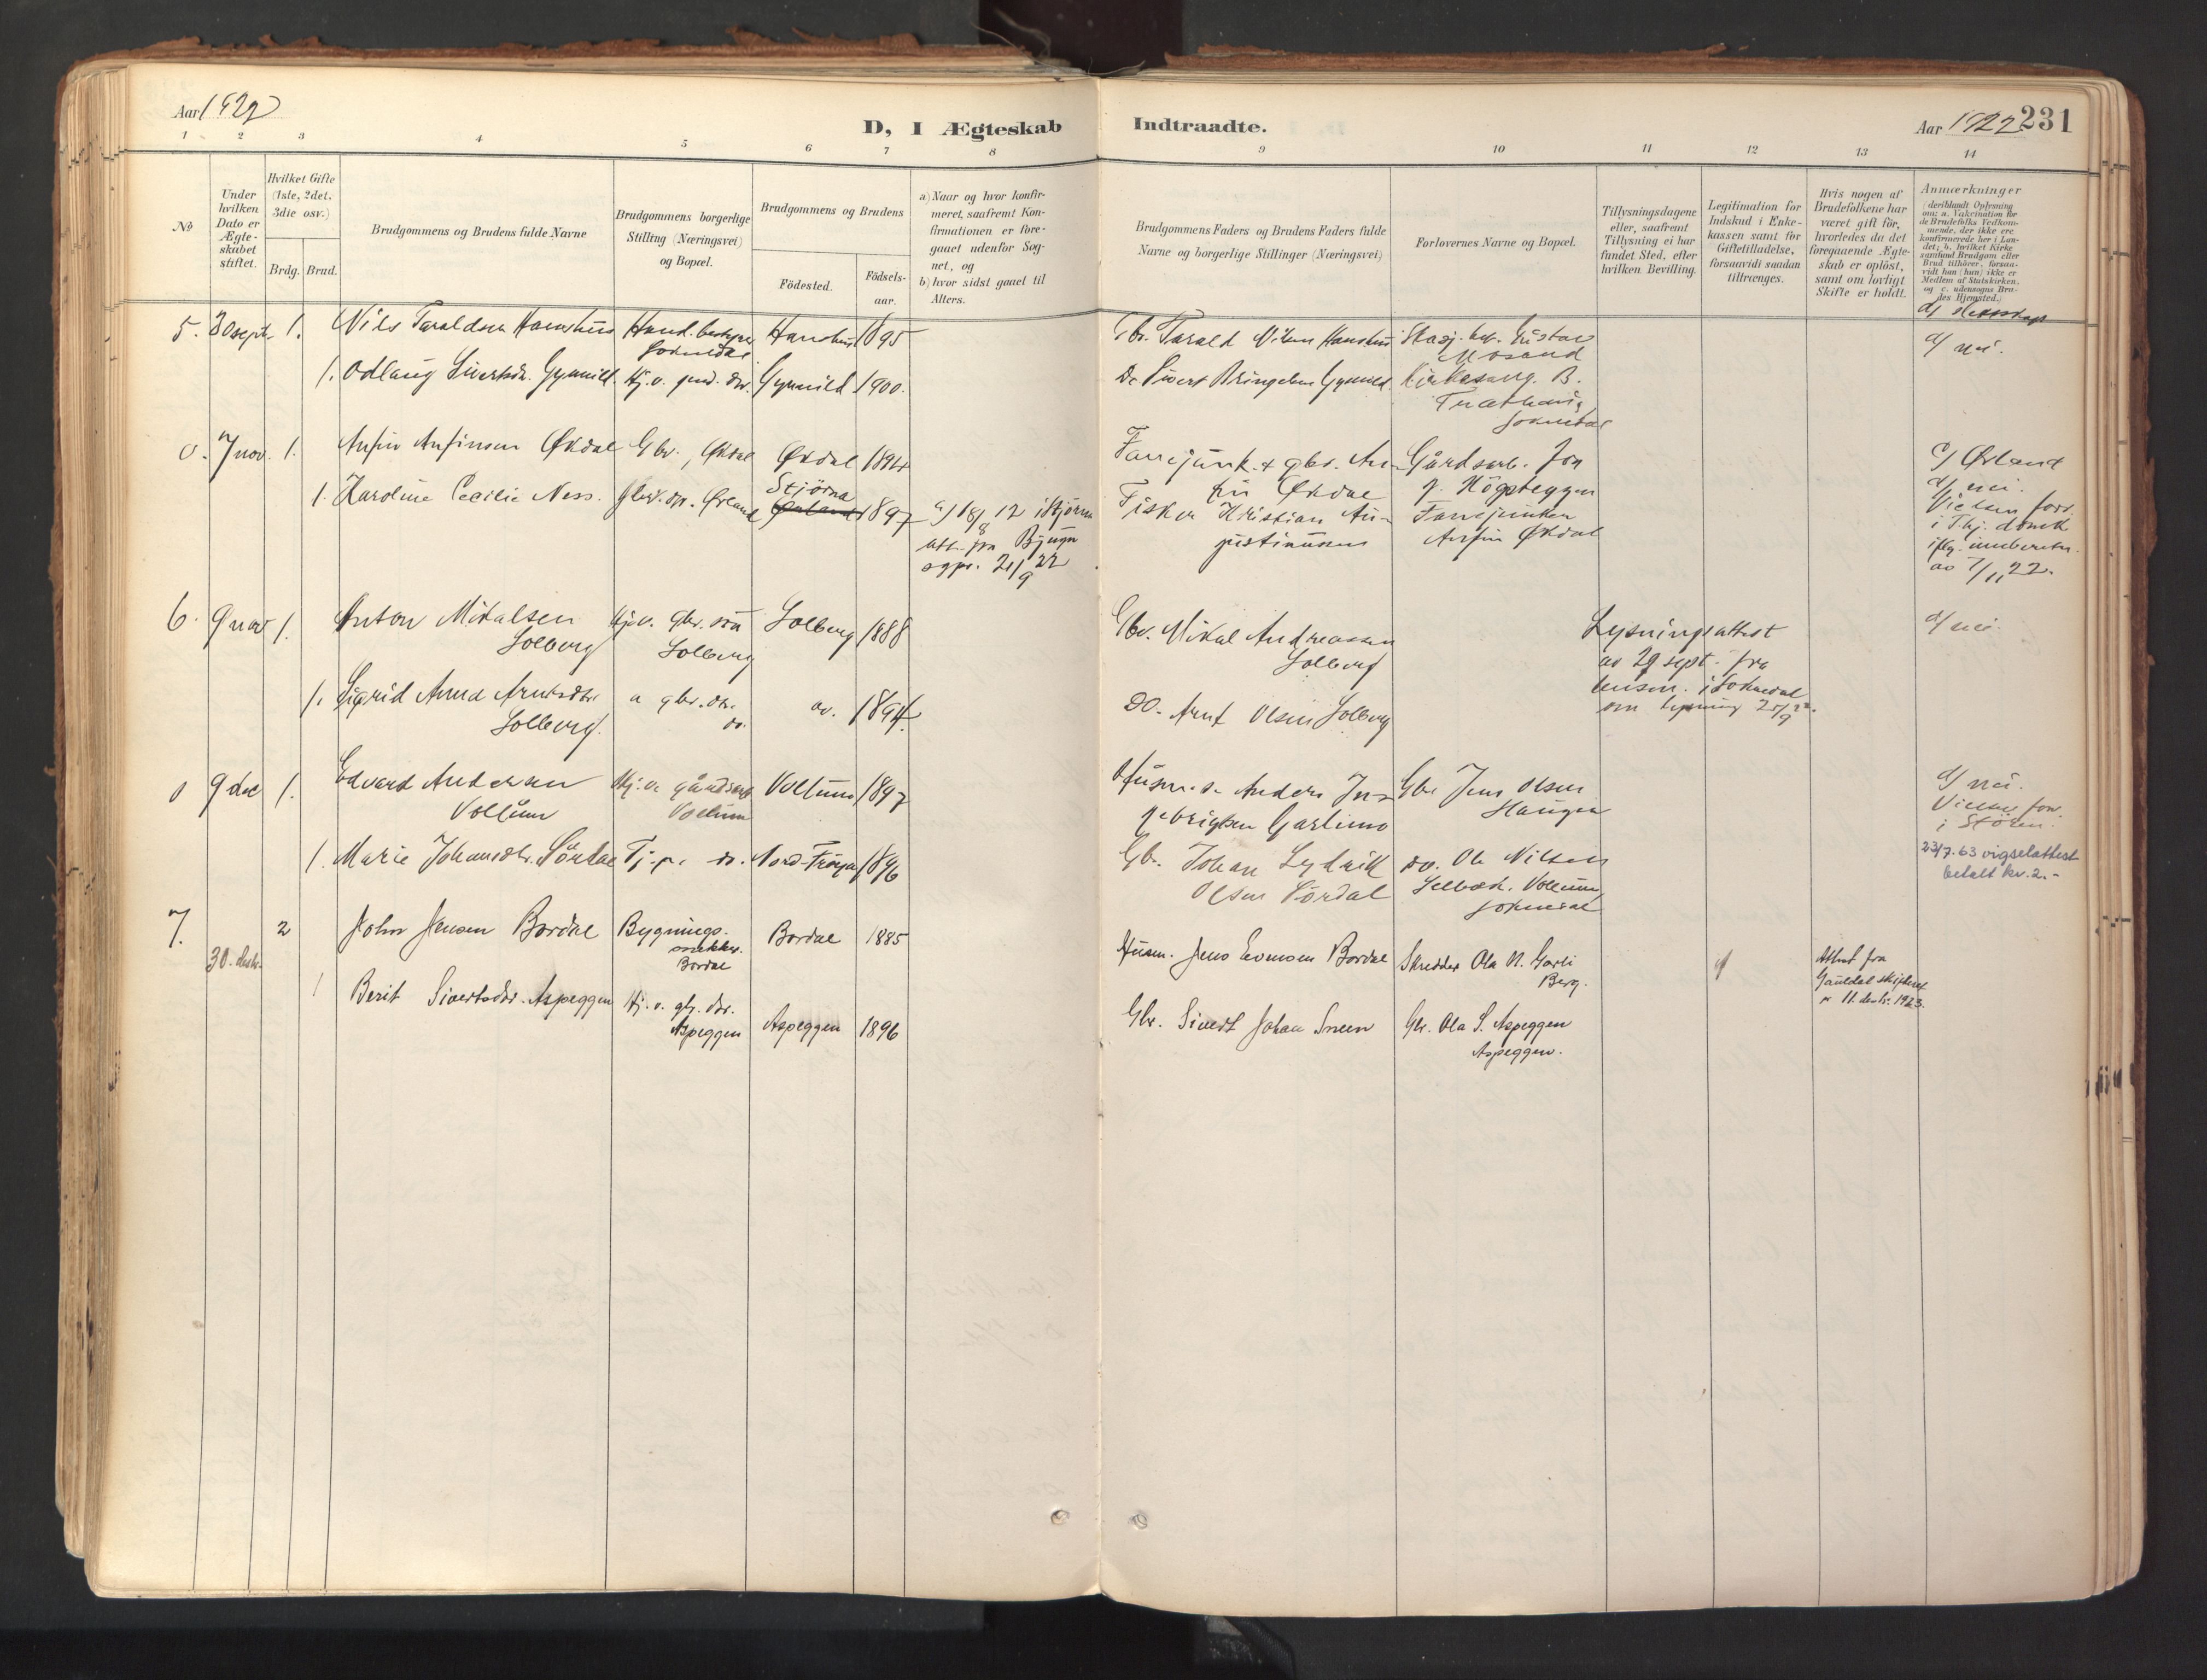 Aar 1922
D, I Ægteskab
Indtraadte.
Aar 1922
231
1 2 3 4 5 6 7 8 9 10 11 12 13 14
No
Under
hvilken
Dato er
Ægte-
skabet
stiftet.
Hvilket Gifte
(1ste, 2det,
3die osv.)
Brdg. Brud.
Brudgommens og Brudens fulde Navne
Brudgommens borgerlige
Stilling (Næringsvei)
og Bopæl.
Brudgommens og Brudens
Födested.
Födsels-
aar.
a) Naar og hvor konfir-
meret, saafremt Kon-
firmationen er fore-
gaaet udenfor Sog-
net, og
b) hvor sidst gaaet til
Alters.
Brudgommens Faders og Brudens Faders fulde
Navne og borgerlige Stillinger (Næringsvei)
Forlovernes Navne og Bopæl.
Tillysningsdagene
eller, saafremt
Tillysning ei har
fundet Sted, efter
hvilken Bevilling.
Legitimation for
Indskud i Enke-
kassen samt for
Giftetilladelse,
forsaavidt saadan
tiltrænges.
Hvis nogen af
Brudefolkene har
været gift før,
hvorledes da det
foregaaende Ægte-
skab er oplöst,
samt om lovligt
Skifte er holdt.
Anmærkninger
(deriblandt Oplysning
om: a. Vakcination for
de Brudefolks Vedkom-
mende, der ikke ere
konfirmerede her i Lan-
det; b. hvilket Kirke
samfund Brudgom eller
Brud tilhører, forsaa-
vidt han (hun) ikke er
Medlem af Statskirken,
og c. udensogns Bru-
des Hjemsted.)
d/ slektskap
5. 30 sept. 1. Nils Taraldsen Hanshus
Hand. bestyrer
Soknedal
Hanshus 1895
Gbr. Tarald Nilsen Hanshus
d/ nei.
1. Odlaug Sivertsdr. Gynnild
Hj. v.
Gynnild 1900.
Do Sivert Bringelsen Gynnild
Kirkesang. B.
Soknedal
0. 7 nov. 1. Anfin Anfinsen Økdal
Gbr., Økdal
Økdal 1894
Fanejunk. + gbr. An-
fin Økdal
Gårdsarb. Jon
J. Högsteggen
c/ Ørland
d/ nei.
1. Karoline Cecilie Ness.
Ørland
Stjörna
Ørland
1897
a/ 18/8 12 i Stjörna
att. fra Bjugn
sgpr. 21/9 22
Fisker Kristian Au-
gustinussen
Fanejunker
Anfin Økdal
Vielsen forr.
i Thj. domk
iflg. innberetn.
av 7/11 22.
6. 9 nov 1. Anton Mikalsen
Solberg
Hj. v. gbr. sön
Solberg
Solberg 1888
Gbr. Mikal Andreassen
Solberg
Lysningsattest
av 29 sept. fra
i Soknedal
om lysning 25/9 22.
d/ nei.
1. Sigrid Anna Arntsdtr.
Solberg.
a gbr. dtr.
do.
do. 1894.
Do. Arnt Olsen Solberg
0 9 dec 1. Edvard Andersen
Vollum
Hj. v. gårdsarb
Vollum
Vollum 1897
Husm. s. Anders In-
gebrigtsen Garlimo
Gbr Jens Olsen
Haugen
d/ nei.
Vielse forr.
i Stören.
1. Marie Johansdtr. Sördal
Tj. p. do.
Nord-Fröya 1896
Gbr. Johan Lydrik
Olsen Sördal
do. Ole Nilsen
Selbæk. Vollum,
Soknedal
23/7.63 vigselattest
betalt kr. 2.-
7.
30. desbr.
2
John Jensen Bordal
Bygnings-
snekker.
Bordal
Bordal 1885
Husm. Jens Evensen Bordal
Skredder Ola N. Garli
Berg.
Attest fra
Gauldal skifteret
11. desbr. 1923.
1 Berit Sivertsdtr. Aspeggen
Hj. v. gbr. dtr.
Aspeggen
Aspeggen 1896
Gbr. Sivert Johan Sneen
Gbr. Ola S. Aspeggen
Aspeggen.